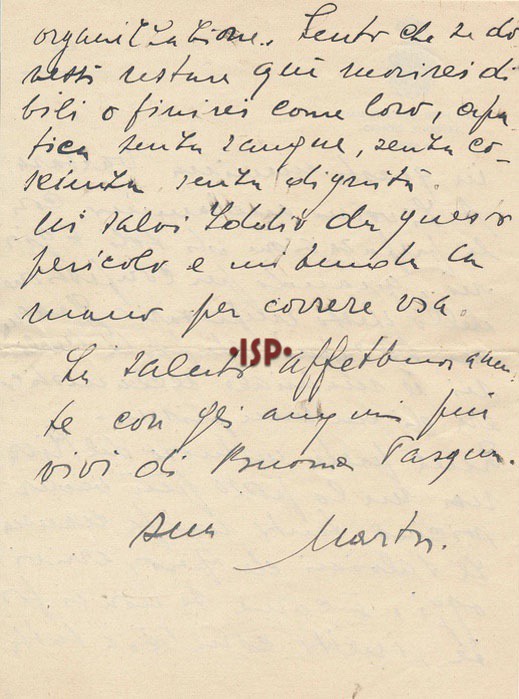 organizzazione. Sento che se do
vessi restare qui morirei di
bili o finirei come loro, apa
tica senza sangue, senza co-
scienza senza dignità.
Mi salvi Iddio da questo
pericolo e mi tenda la
mano per correre via.
·ISP·
La saluto affettuosamen
te con gli auguri più
vivi di Buona Pasqua.
sua Marta.